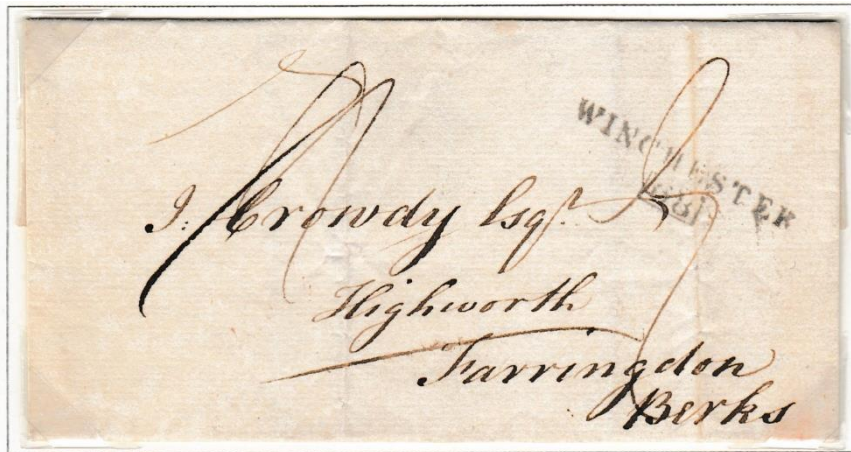 WINCHESTER
J: Crowdy Esqr.
Highworth
Farringdon
Berks